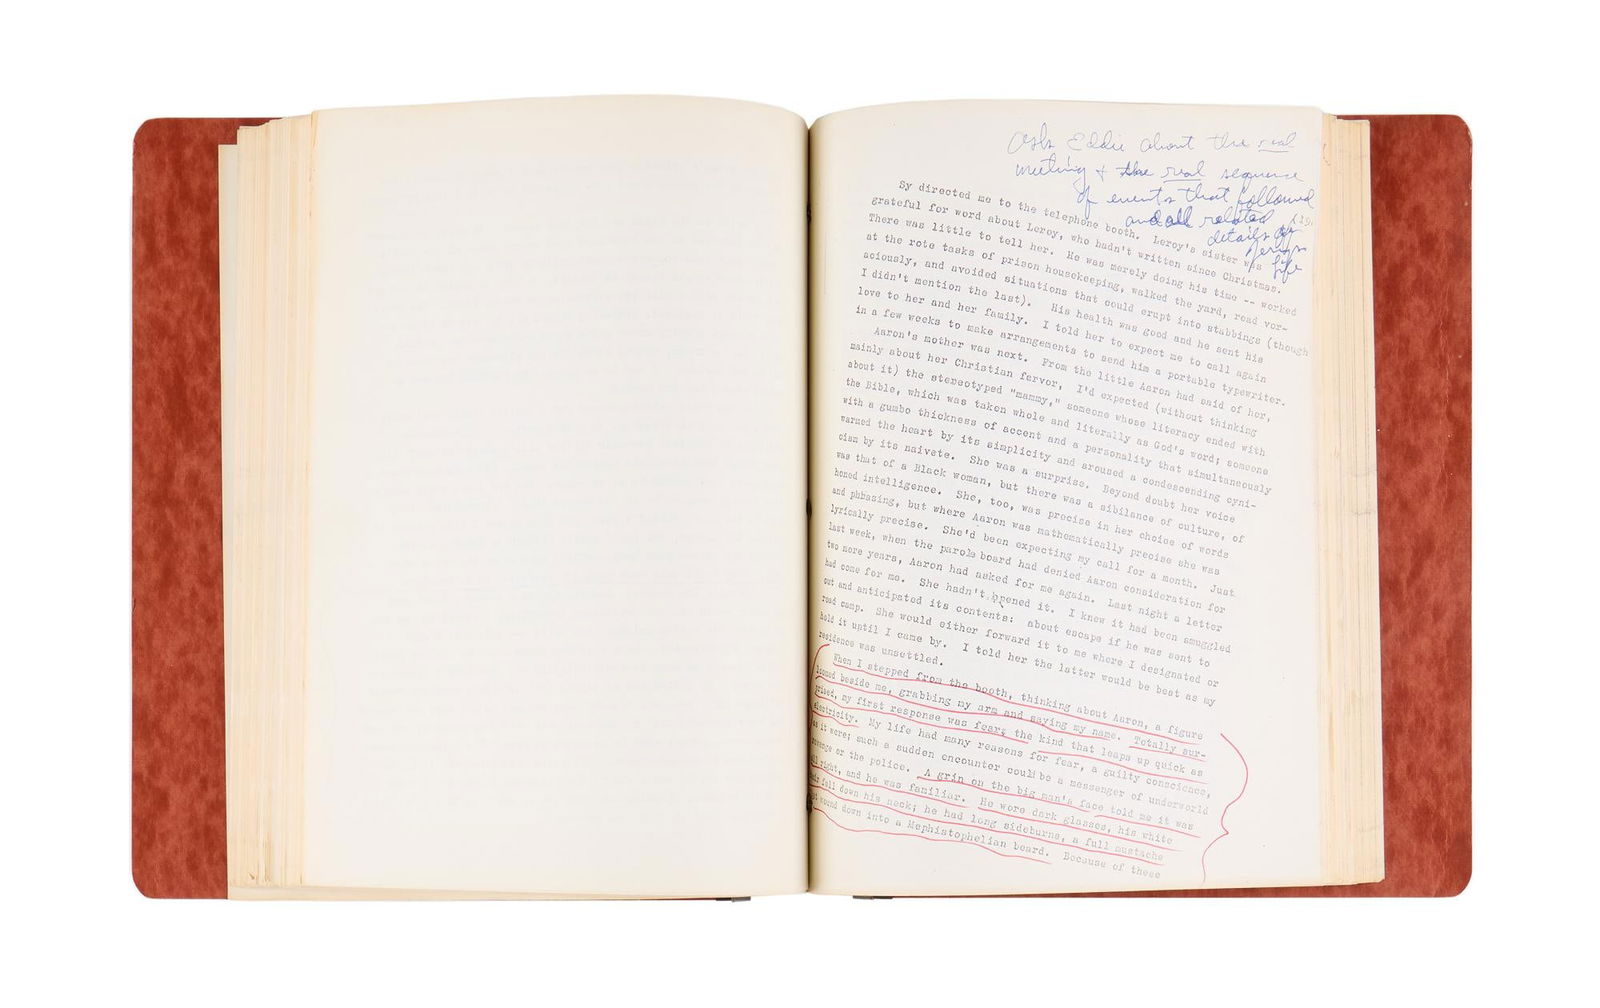 Ask Eddie about the real
meeting & the real sequence
of events that followed
and all related
details of
life
Sy directed me to the telephone booth. Leroy's sister was
grateful for word about Leroy, who hadn't written since Christmas.
There was little to tell her. He was merely doing his time -- worked
at the rote tasks of prison housekeeping, walked the yard, read vor-
aciously, and avoided situations that could erupt into stabbings (though
I didn't mention the last). His health was good and he sent his
love to her and her family. I told her to expect me to call again
in a few weeks to make arrangements to send him a portable typewriter.
Aaron's mother was next. From the little Aaron had said of her,
mainly about her Christian fervor, I'd expected (without thinking
about it) the stereotyped "mammy," someone whose literacy ended with
the Bible, which was taken whole and literally as God's word; someone
with a gumbo thickness of accent and a personality that simultaneously
warmed the heart by its simplicity and aroused a condescending cyni-
cism by its naivete. She was a surprise. Beyond doubt her voice
was that of a Black woman, but there was a sibilance of culture, of
honed intelligence. She, too, was precise in her choice of words
and phbasing, but where Aaron was mathematically precise she was
lyrically precise. She'd been expecting my call for a month. Just
last week, when the parole board had denied Aaron consideration for
two more years, Aaron had asked for me again. Last night a letter
had come for me. She hadn't opened it. I knew it had been smuggled
out and anticipated its contents: about escape if he was sent to
road camp. She would either forward it to me where I designated or
hold it until I came by. I told her the latter would be best as my
residence was unsettled.
When I stepped from the booth, thinking about Aaron, a figure
loomed beside me, grabbing my arm and saying my name. Totally sur-
prised, my first response was fear; the kind that leaps up quick as
electricity. My life had many reasons for fear, a guilty conscience,
as it were; such a sudden encounter could be a messenger of underworld
revenge or the police. A grin on the big man's face told me it was
all right, and he was familiar. He wore dark glasses, his white
hair fell down his neck; he had long sideburns, a full mustache
wound down into a Mephistophelian beard. Because of these